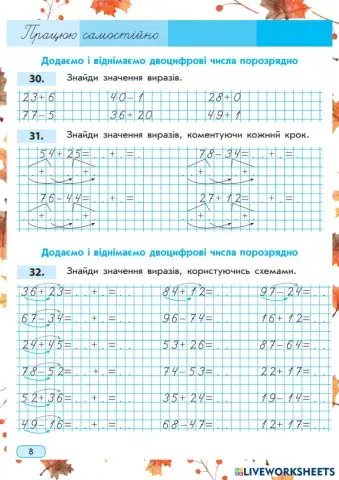 Працюю самостійно
Додаємо і віднімаємо двоцифрові числа порозрядно
30. Знайди значення виразів.
23+6 40-1 28+0
77-5 36+20 49+1
31. Знайди значення виразів, коментуючи кожний крок.
54+25=..+.=.. 78-34=..+.=..
+ + + +
76-44=..+.=.. 27+12=..+.=..
+ + + +
Додаємо і віднімаємо двоцифрові числа порозрядно
32. Знайди значення виразів, користуючись схемами.
36+23=..+.=.. 84+12= 97-24=
67-34=..+.=.. 96-74= 16+12=
24+45=..+.=.. 53+26= 87-64=
78-52=..+.=.. 74-53= 22+17=
52+36=..+.=.. 35+24= 19-14=
49-16=..+.=.. 68-47= 12+17=
8
LIVEWORKSHEETS